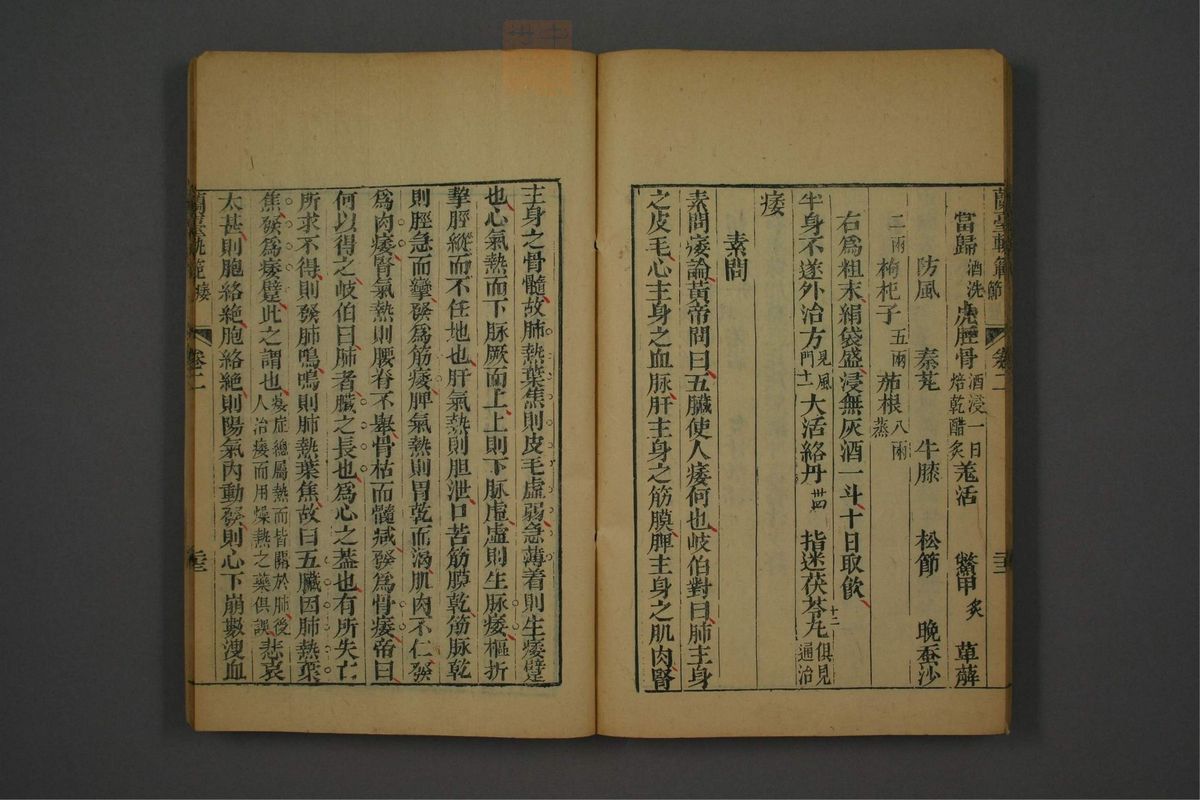 蘭臺軌範 節 卷二
當歸酒洗 虎脛骨酒浸一日焙乾醋炙 羗活 鱉甲炙 萆薢
防風 秦艽 牛膝 松節 晚蚕沙
二兩 枸杞子五兩 茄根八兩蒸
右爲粗末絹袋盛浸無灰酒一斗十日取飲
半身不遂外治方見風門十一 大活絡丹卌四 指迷茯苓丸十二俱見通治
痿
素問
素問痿論黃帝問曰五臟使人痿何也岐伯對曰肺主身
之皮毛心主身之血脉肝主身之筋膜脾主身之肌肉腎
主身之骨髓故肺熱葉焦則皮毛虛弱急薄着則生痿躄
也心氣熱而下脉厥而上上則下脉虛虛則生脉痿樞折
挈脛縱而不任地也肝氣熱則胆泄口苦筋膜乾筋脉乾
則脛急而攣發爲筋痿脾氣熱則胃乾而渴肌肉不仁發
爲肉痿腎氣熱則腰脊不舉骨枯而髓减發爲骨痿帝曰
何以得之岐伯曰肺者臟之長也爲心之蓋也有所失亡
所求不得則發肺鳴鳴則肺熱葉焦故曰五臟因肺熱葉
焦發爲痿躄此之謂也痿症總屬熱而皆關於肺後人治痿而用燥熱之藥俱誤悲哀
太甚則胞絡絶胞絡絶則陽氣內動發則心下崩數溲血
蘭臺軌範 痿 卷二